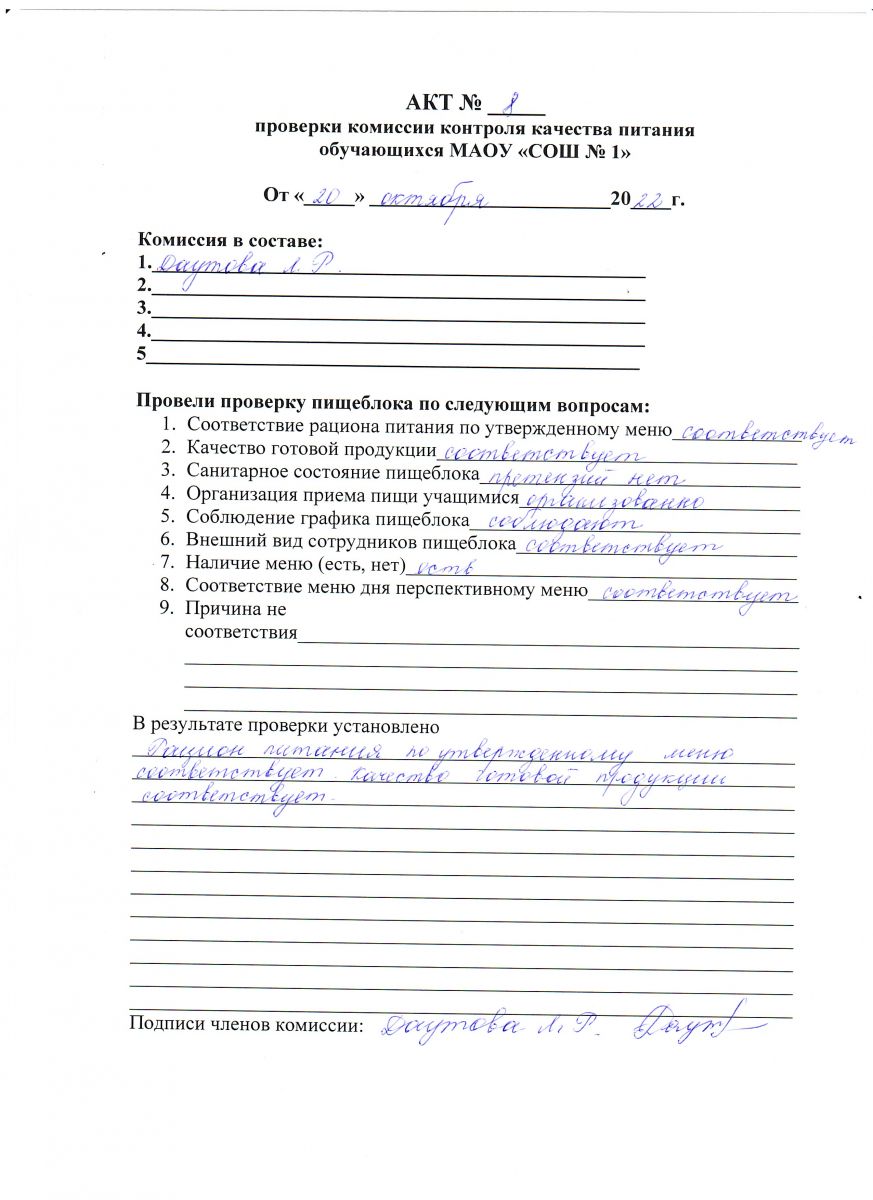 АКТ № 8
проверки комиссии контроля качества питания
обучающихся МАОУ «СОШ № 1»
От «20» октября 2022 г.
Комиссия в составе:
1. Даутова Л. Р.
2.
3.
4.
5
Провели проверку пищеблока по следующим вопросам:
1. Соответствие рациона питания по утвержденному меню соответствует
2. Качество готовой продукции соответствует
3. Санитарное состояние пищеблока претензий нет
4. Организация приема пищи учащимися организованно
5. Соблюдение графика пищеблока соблюдают
6. Внешний вид сотрудников пищеблока соответствует
7. Наличие меню (есть, нет) есть
8. Соответствие меню дня перспективному меню соответствует
9. Причина не
соответствия
В результате проверки установлено
Рацион питания по утвержденному меню
соответствует. Качество готовой продукции
соответствует.
Подписи членов комиссии: Даутова Л. Р. Даут